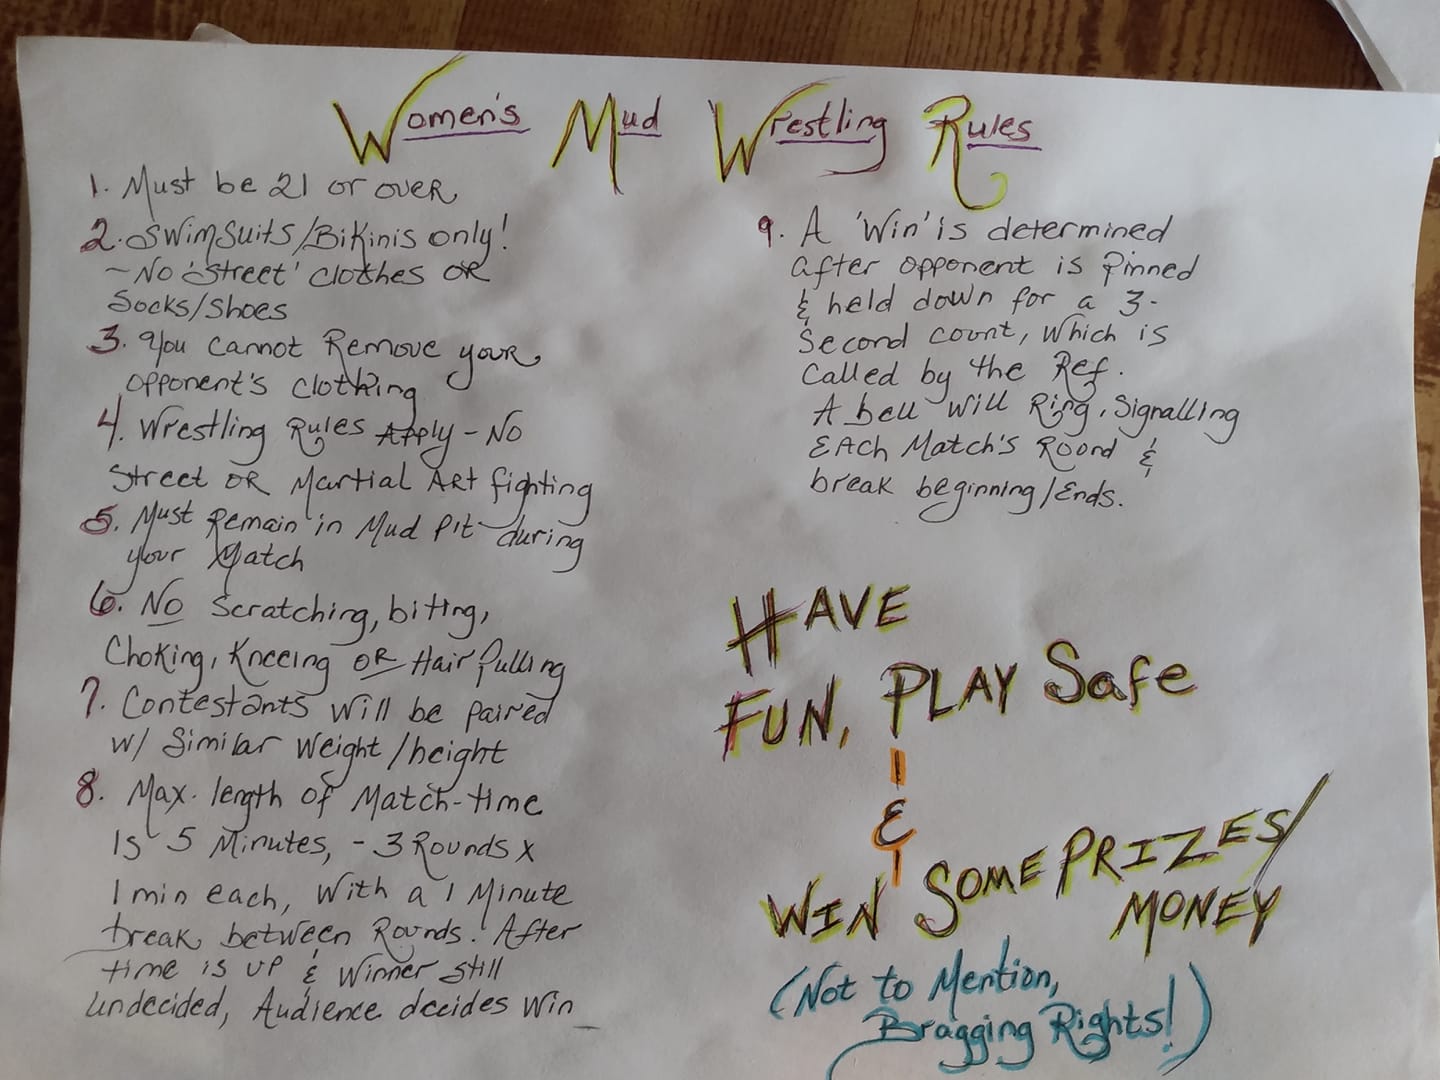 Women's Mud Wrestling Rules
1. Must be 21 or over
2. Swimsuits/Bikinis only!
~No 'street' clothes OR
Socks/Shoes
3. You cannot Remove your
opponent's clothing
4. Wrestling Rules Apply - No
Street OR Martial Art fighting
5. Must Remain in Mud Pit during
your Match
6. No Scratching, biting,
Choking, Kneeing OR Hair Pulling
7. Contestants will be paired
w/ Similar Weight/height
8. Max. length of Match-time
Is 5 Minutes, - 3 Rounds x
1 min each, With a 1 Minute
break between Rounds. After
time is up & Winner still
undecided, Audience decides Win
9. A 'Win' is determined
after opponent is Pinned
& held down for a 3-
Second count, which is
called by the Ref.
A bell will Ring, Signalling
Each Match's Roond &
break beginning/Ends.
HAVE
FUN, PLAY Safe
&
WIN SOME PRIZES/
MONEY
(Not to Mention,
Bragging Rights!)